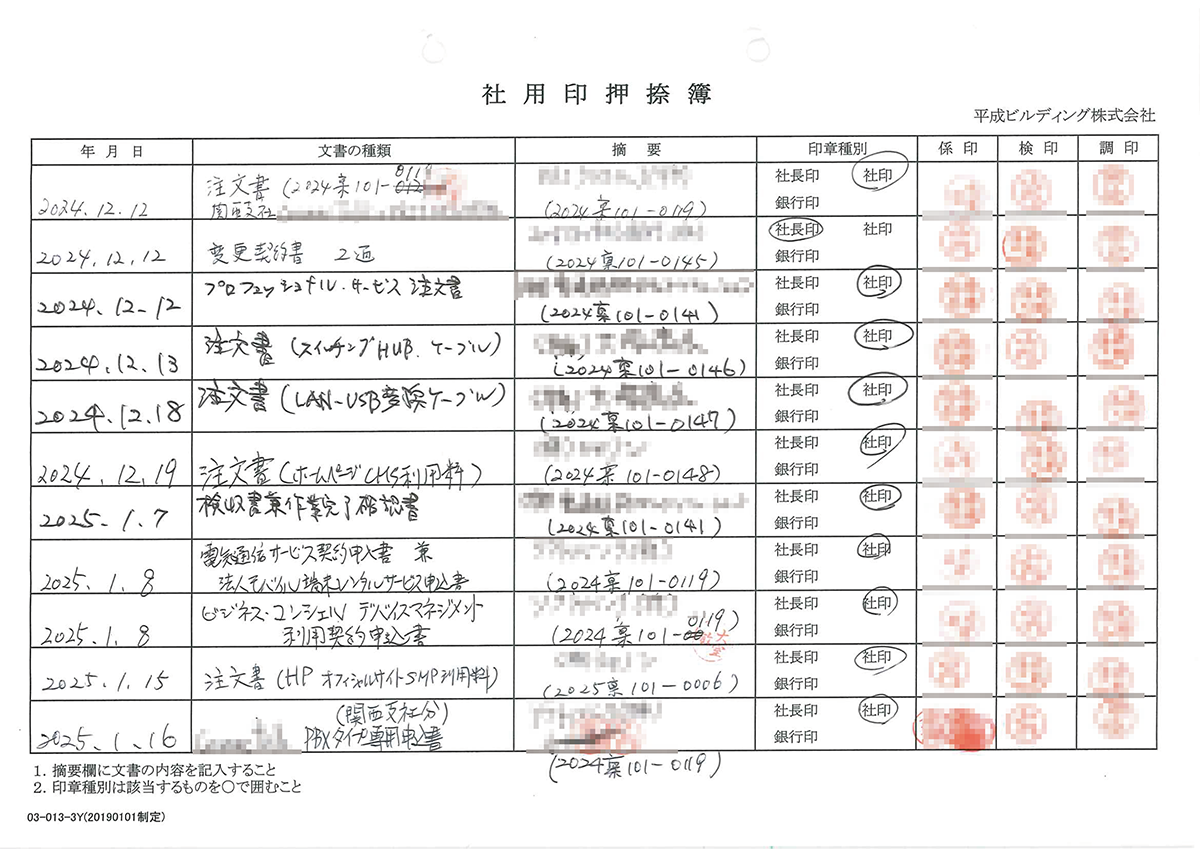 社用印押捺簿
平成ビルディング株式会社
年月日 文書の種類 摘要 印章種別 係印 検印 調印
2024.12.12 注文書(2024棄101-0119 社長印 社印
関西支社 (2024棄101-0119) 銀行印
2024.12.12 変更契約書 2通 (2024棄101-0145) 社長印 社印
銀行印
2024.12.12 プロフェッショナル・サービス 注文書 (2024棄101-0141) 社長印 社印
銀行印
2024.12.13 注文書(スイッチングHUB.ケーブル) (2024棄101-0146) 社長印 社印
銀行印
2024.12.18 注文書(LAN-USB変換ケーブル) (2024棄101-0147) 社長印 社印
銀行印
2024.12.19 注文書(ホームページCMS利用料) (2024棄101-0148) 社長印 社印
銀行印
2025.1.7 検収書兼作業完了確認書 (2024棄101-0141) 社長印 社印
銀行印
2025.1.8 電気通信サービス契約申込書 兼 社長印 社印
法人モバイル端末レンタルサービス申込書 (2024棄101-0119) 銀行印
2025.1.8 ビジネス・コンシェル デバイスマネジメント 0119) 社長印 社印
利用契約申込書 (2024棄101- 銀行印
2025.1.15 注文書(HP オフィシャルサイトSMP利用料) (2025棄101-0006) 社長印 社印
銀行印
2025.1.16 (関西支社分) 社長印 社印
PBXタイプ専用申込書 銀行印
(2024棄101-0119)
1. 摘要欄に文書の内容を記入すること
2. 印章種別は該当するものを○で囲むこと
03-013-3Y(20190101制定)